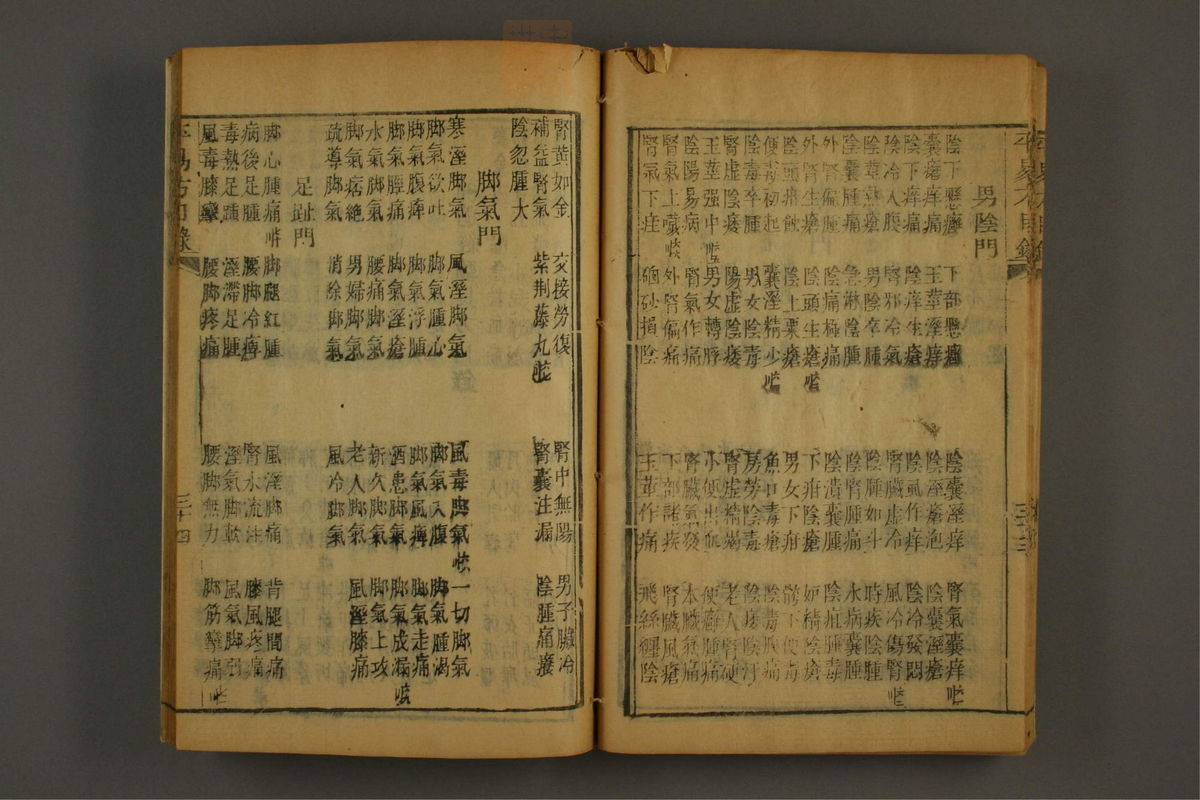 男陰門
陰下懸癰 下部懸癰 陰囊溼痒 腎氣囊痒
囊癰痒痛 玉莖溼痒 陰溼瘡泡 陰囊溼瘡
陰下痒痛 陰痒生瘡 陰風作痒 陰冷發悶
陰冷入腹 腎邪冷氣 腎臟虛冷 風冷傷腎
陰莖痒腫 男陰卒腫 陰腫如斗 時疾陰腫
陰囊腫痛 急淋陰腫 陰腎腫痛 水病囊腫
外腎偏腫 陰痛極痛 陰潰囊腫 陰疽腫毒
外腎生瘡 陰頭生瘡 下疳陰瘡 妒精陰瘡
陰頭疳蝕 陰上粟瘡 男女下疳 便毒
便毒初起 囊溼精少 魚口毒瘡 陰毒腹痛
腎毒卒腫 男女陰毒 房勞陰毒 陰痿陰汗
腎虛陰痿 陽虛陰痿 腎虛精竭 老人腎硬
玉莖强中 男女轉脬 小便出血 便癖腫痛
陰陽易病 腎氣作痛 腎臟氣發 本臟氣痛
腎氣上噦 外腎偏痛 下部諸疾 腎臟風瘡
腎氣下疰 硇砂損陰 玉莖作痛 飛絲纏陰
腎黄如金 交接勞復 腎中無陽 男子臟冷
補益腎氣 紫荆藤丸 腎囊注漏 陰腫痛癢
陰忽腫大
脚氣門
寒溼脚氣 風溼脚氣 風毒脚氣 一切脚氣
脚氣欲吐 脚氣腫心 脚氣入腹 脚氣腫渴
脚氣腹痺 脚氣浮腫 脚氣風痺 脚氣走痛
脚氣脛痛 脚氣溼瘡 酒患脚氣 脚氣成漏
水氣脚氣 腰痛脚氣 新久脚氣 脚氣上攻
脚氣痞絶 男婦脚氣 老人脚氣 風溼膝痛
疏導脚氣 消除脚氣 風冷脚氣
足趾門
脚心腫痛 脚腿紅腫 風溼脚痛 脊腿間痛
病後足腫 腰脚冷痺 腎水流注 膝風疼痛
毒熱足腫 溼滯足腫 溼氣脚軟 風氣脚弱
風毒膝攣 腰脚疼痛 腰脚無力 脚筋攣痛
三十四